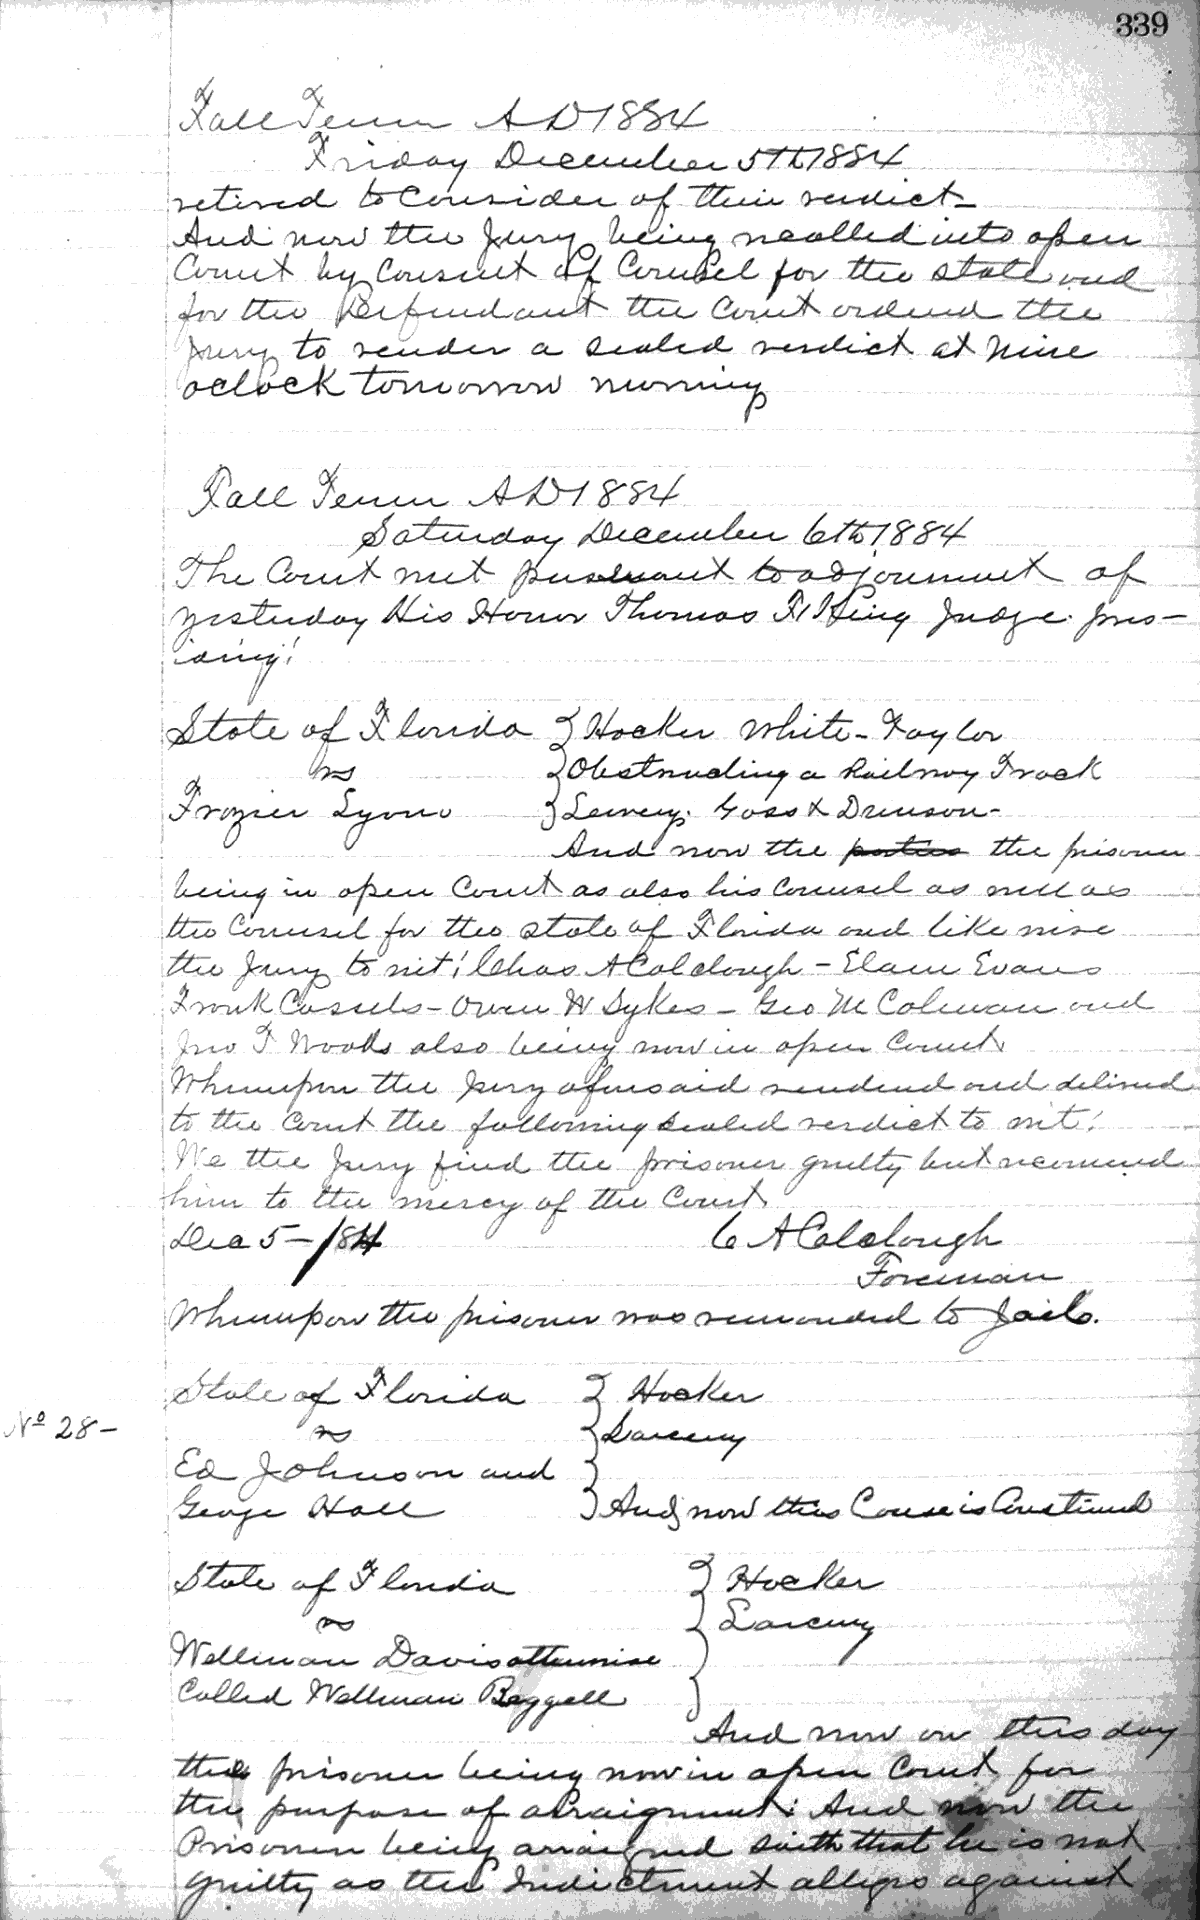 339
Fall Term A D 1884
Friday December 5th 1884
retired to Consider of their verdict-
And now the Jury being recalled into open
Court by Consent of Counsel for the State and
for the Defendant the Court ordered the
Jury to render a sealed verdict at nine
oclock tomorrow morning
Fall Term A D 1884
Saturday December 6th 1884
The Court met pursuant to adjournment of
yesterday His Honor Thomas F King Judge pres-
iding!
State of Florida } Hocker White - Taylor
vs } Obstructing a Railway Track
Frozier Lyons } Goss & Dennison-
And now the parties the prisoner
being in open Court as also his Counsel as well as
the Counsel for the State of Florida and like wise
the Jury to wit! Chas A Colclough - Elam Evans
Frank Cassels - Owen W Sykes - Geo M Colman and
Jno T Woods also being now in open Court
Whereupon the Jury aforesaid rendered and delivered
to the Court the following sealed verdict to wit!
We the Jury find the prisoner guilty but recomend
him to the mercy of the Court
Dec 5 - /84 C A Colclough
Foreman
Whereupon the prisoner was remanded to Jail.
State of Florida } Hocker
No 28 - vs } Larceny
Ed Johnson and }
George Hall } And now this Cause is Continued
State of Florida } Hocker
vs } Larceny
Wellman Davis otherwise
Called Wellman Baggell }
And now on this day
the prisoner being now in open Court for
the purpose of arraignment: And now the
Prisoner being arraigned saith that he is not
guilty as the Indictment alleges against